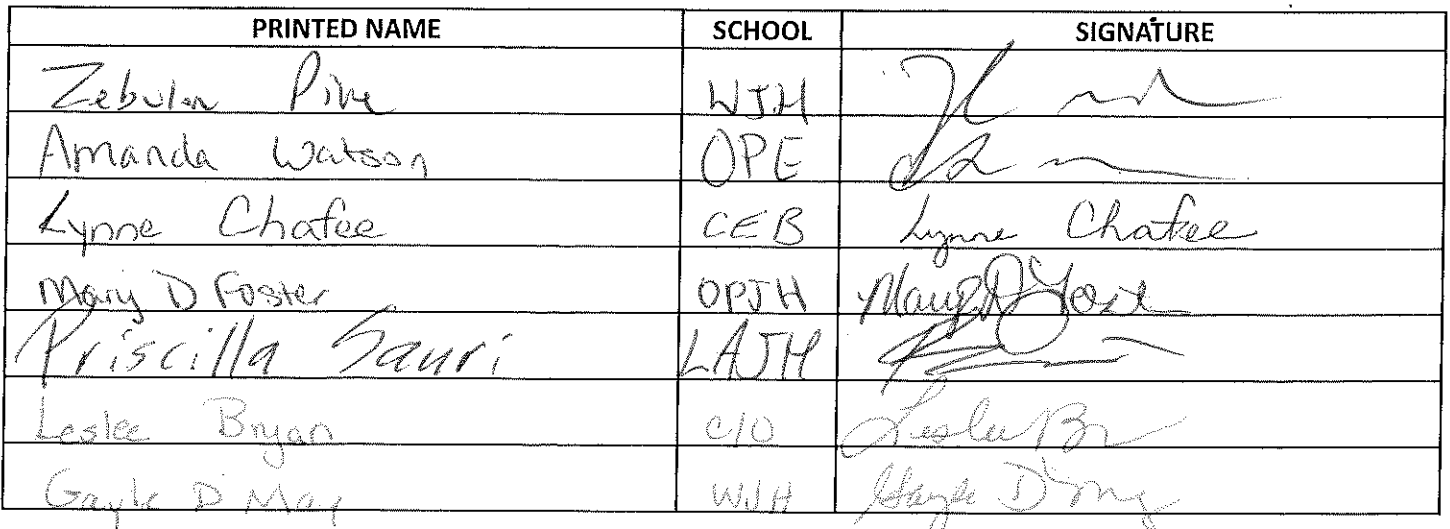 PRINTED NAME SCHOOL SIGNATURE
Zebulon Pike WJH
Amanda Watson OPE
Lynne Chafee CEB Lynne Chafee
Mary D Foster OPJH Mary D Foster
Priscilla Sauri LAJH
Leslee Bryan C/O Leslee Br
Gayle D May WJH Gayle D May